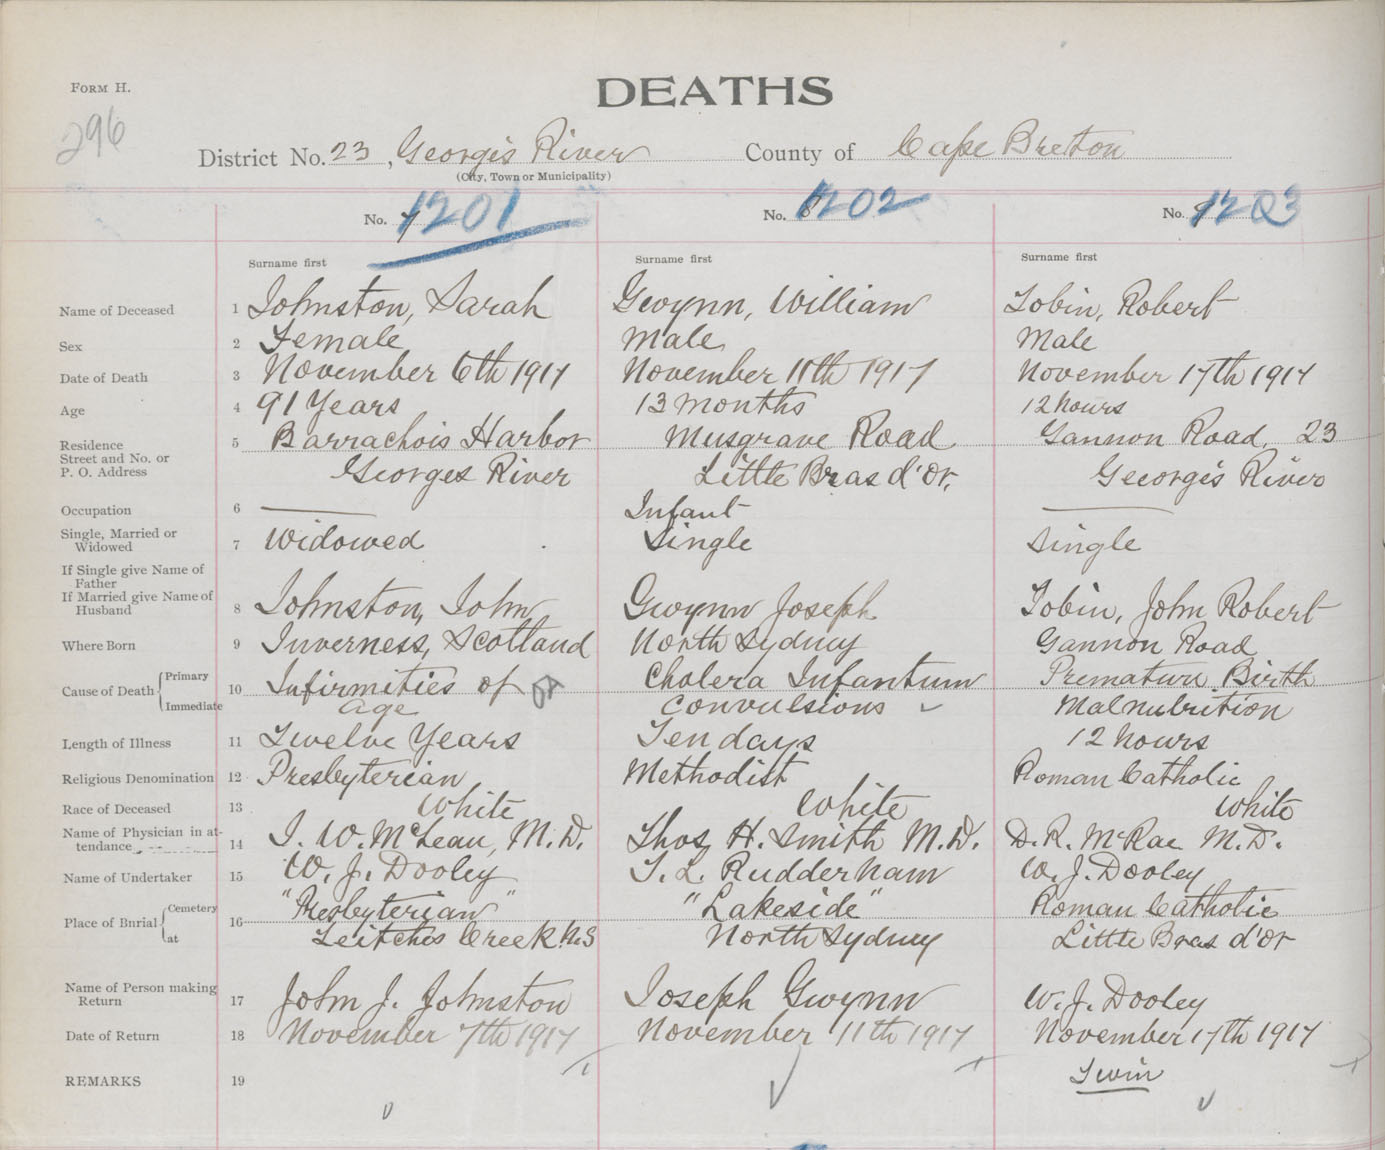 FORM H.
DEATHS
296
District No. 23, Georges River County of Cape Breton
(City, Town or Municipality)
No. 7 1201 No. 8 1202 No. 9 1203
Surname first Surname first Surname first
Name of Deceased 1 Johnston, Sarah Gwynn, William Tobin, Robert
Sex 2 Female Male Male
Date of Death 3 November 6th 1917 November 11th 1917 November 17th 1917
Age 4 91 Years 13 months 12 hours
Residence 5 Barrachois Harbor Musgrave Road Gannon Road, 23
Street and No. or
P. O. Address Georges River Little Bras d'Or, Georges River
Occupation 6 —— Infant ——
Single, Married or
Widowed 7 Widowed Single Single
If Single give Name of
Father
If Married give Name of
Husband 8 Johnston, John Gwynn Joseph Tobin, John Robert
Where Born 9 Inverness, Scotland North Sydney Gannon Road
Cause of Death { Primary 10 Infirmities of OA Cholera Infantum Premature Birth
Immediate age Convulsions Malnutrition
Length of Illness 11 Twelve Years Ten days 12 hours
Religious Denomination 12 Presbyterian Methodist Roman Catholic
Race of Deceased 13 White White White
Name of Physician in at-
tendance 14 J. W. McLean, M.D. Thos. H. Smith M.D. D. R. McRae M.D.
Name of Undertaker 15 W. J. Dooley T. L. Rudderham W. J. Dooley
Place of Burial { Cemetery 16 "Presbyterian" "Lakeside" Roman Catholic
at Leitches Creek N.S North Sydney Little Bras d'Or
Name of Person making
Return 17 John J. Johnston Joseph Gwynn W. J. Dooley
Date of Return 18 November 7th 1917 November 11th 1917 November 17th 1917
REMARKS 19 Twin